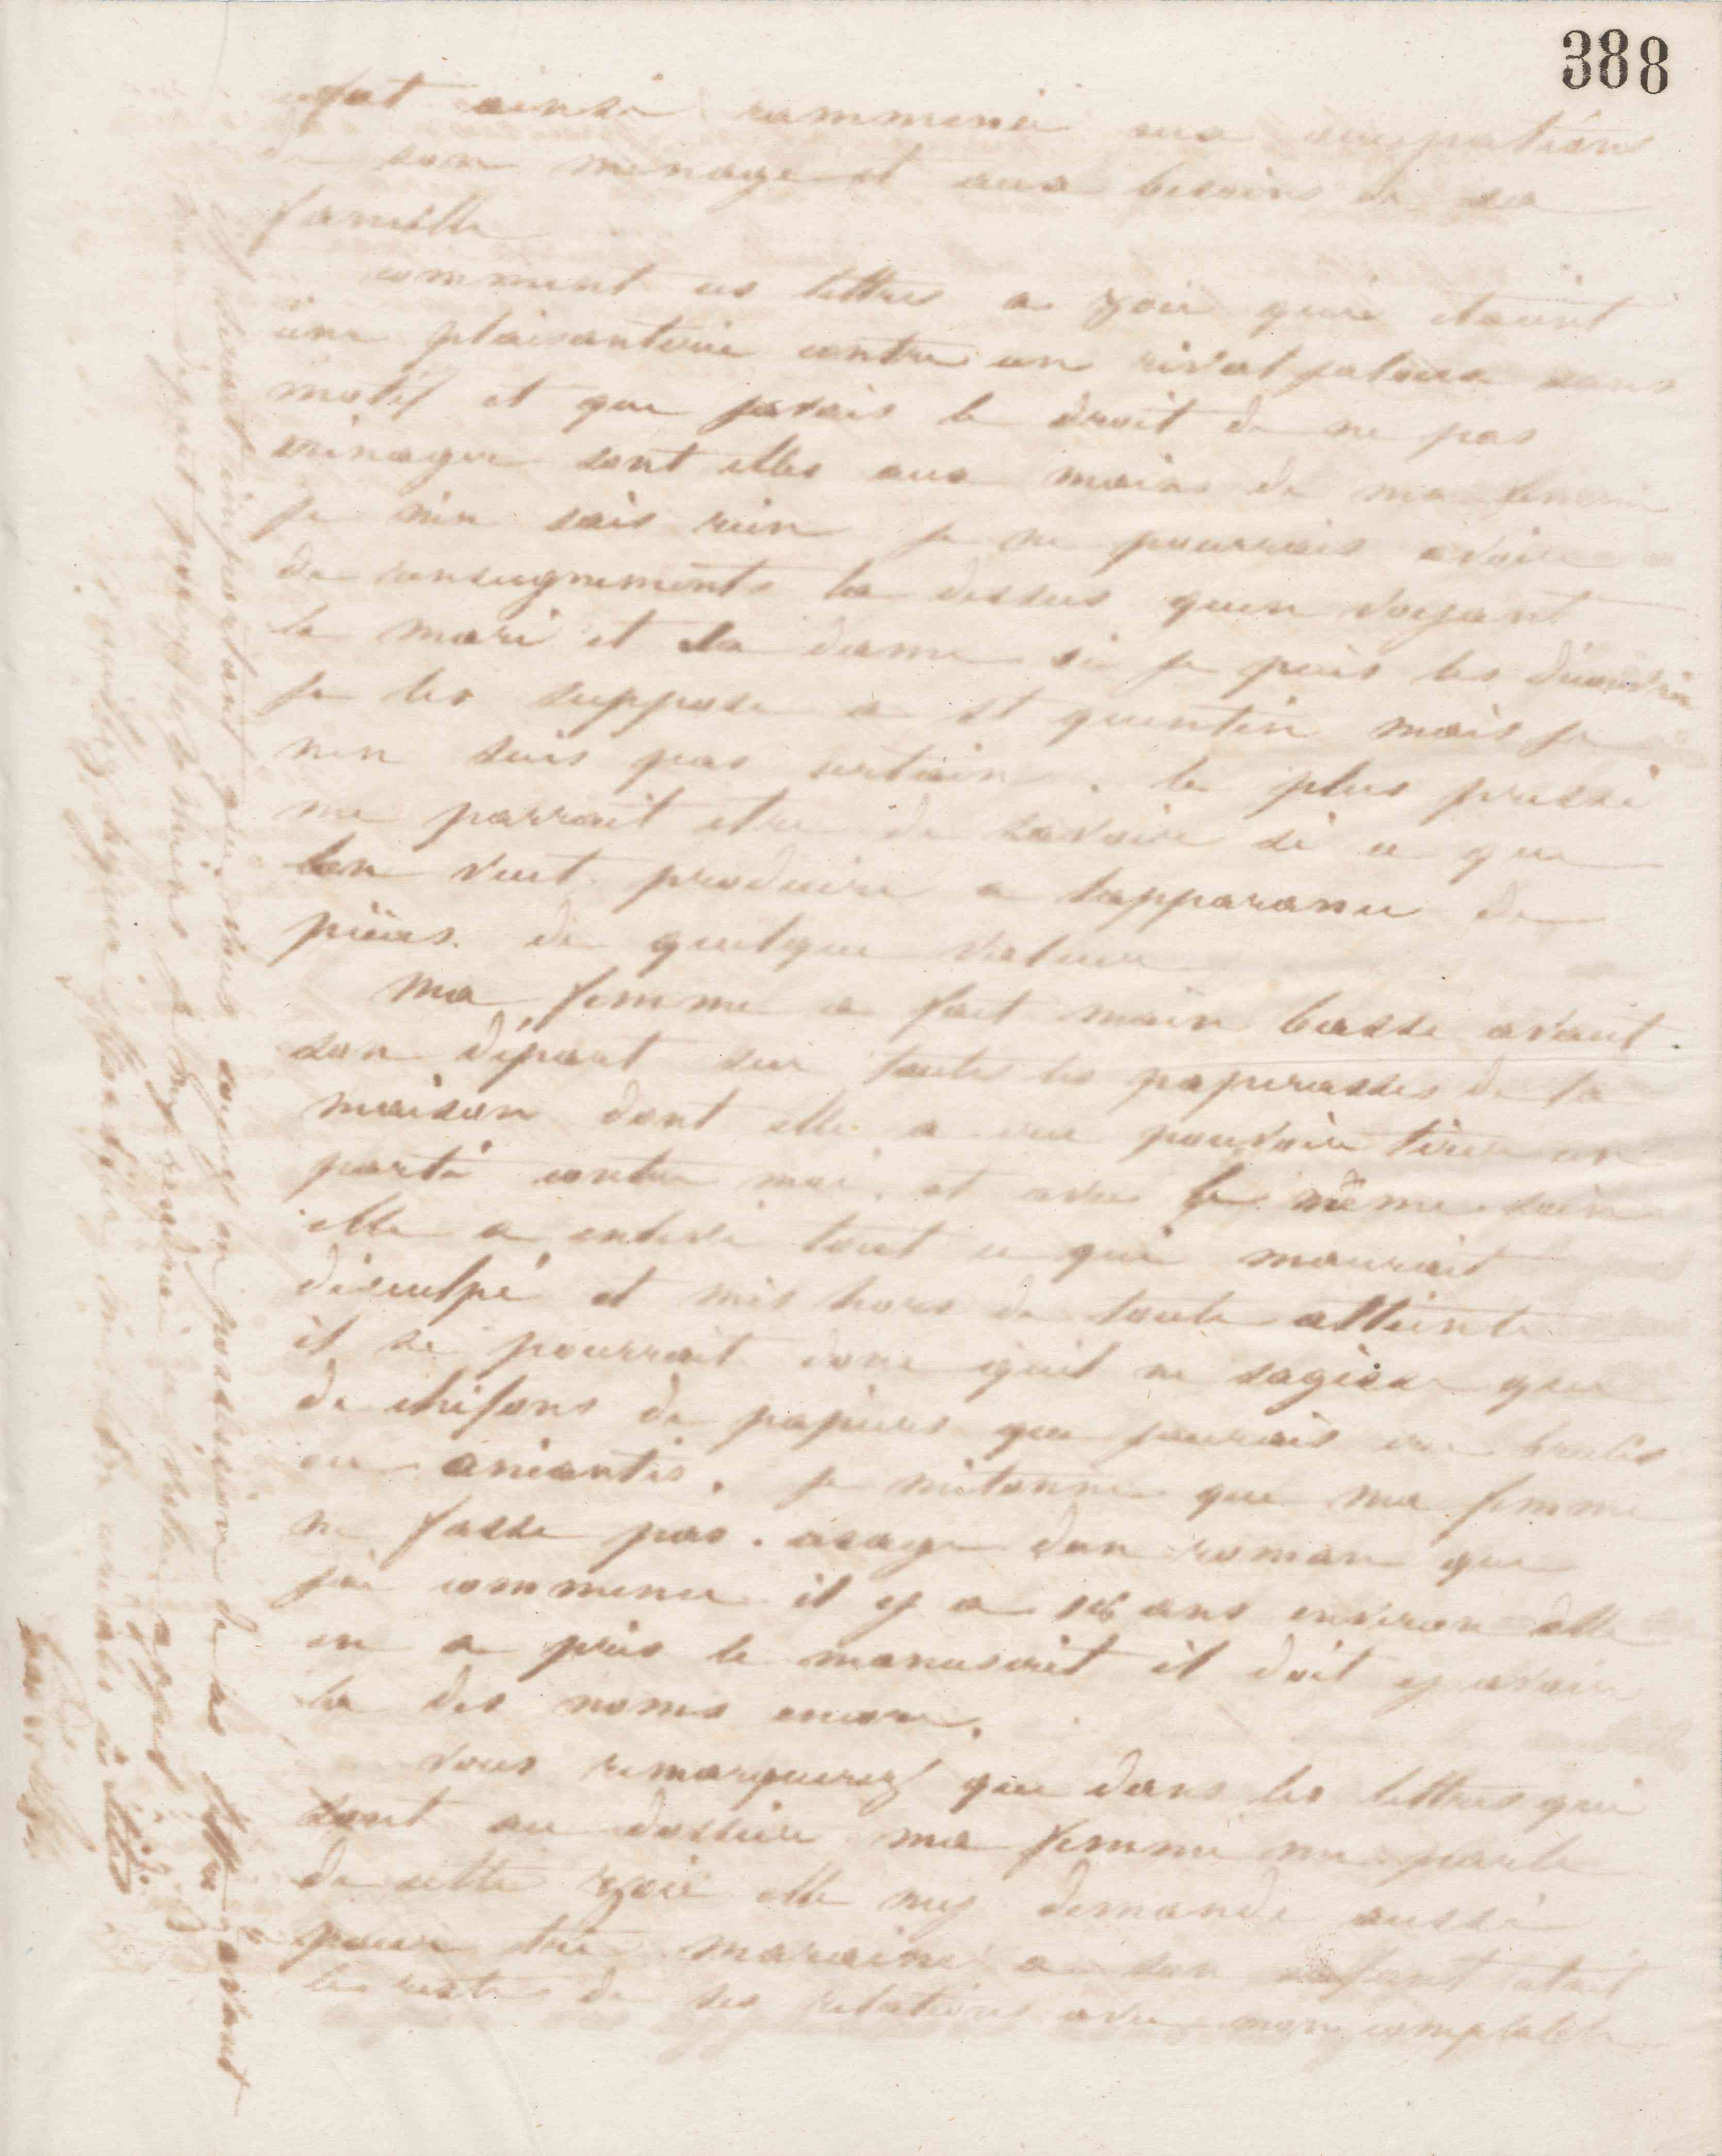 388
fut ainsi rammenée aux occupations
de son menage et aux besoins de sa
famille
comment ces lettres a Zoé qui etaient
une plaisanterie contre un rival jaloux sans
motif et que javais le droit de ne pas
menager sont elles aux mains de ma femme
je nen sais rien je ne pourrais avoir
de renseignements la dessus quen voyant
le mari et la dame si je puis les découvrir
je les suppose a st quentin mais je
nen suis pas certain. le plus pressé
me parrait etre de savoir si ce que
lon veut produire a lapparance de
pièces de quelque valeur
Ma femme a fait main basse avant
son départ sur toutes les paperasses de la
maison dont elle a cru pouvoir tirer un
parti contre moi. et avec le même soin
elle a enlevé tout ce qui maurait
disculpé et mis hors de toute atteinte
il se pourrait donc quil ne sagisse que
de chifons de papiers que jaurais cru brulés
ou anéantis. je métonne que ma femme
ne fasse pas usage dun roman que
jai commencé il y a ans environ elle
en a pris le manuscrit il doit y avoir
la des noms encore.
Vous remarquerez que dans les lettres qui
sont au dossier ma femme me parle
de cette Zoé elle my demande aussi
pour etre maraine a son enfant etait
les restes de ses relations avec mon comptable
il serait important que vous soyez en possession de ces lettres avant